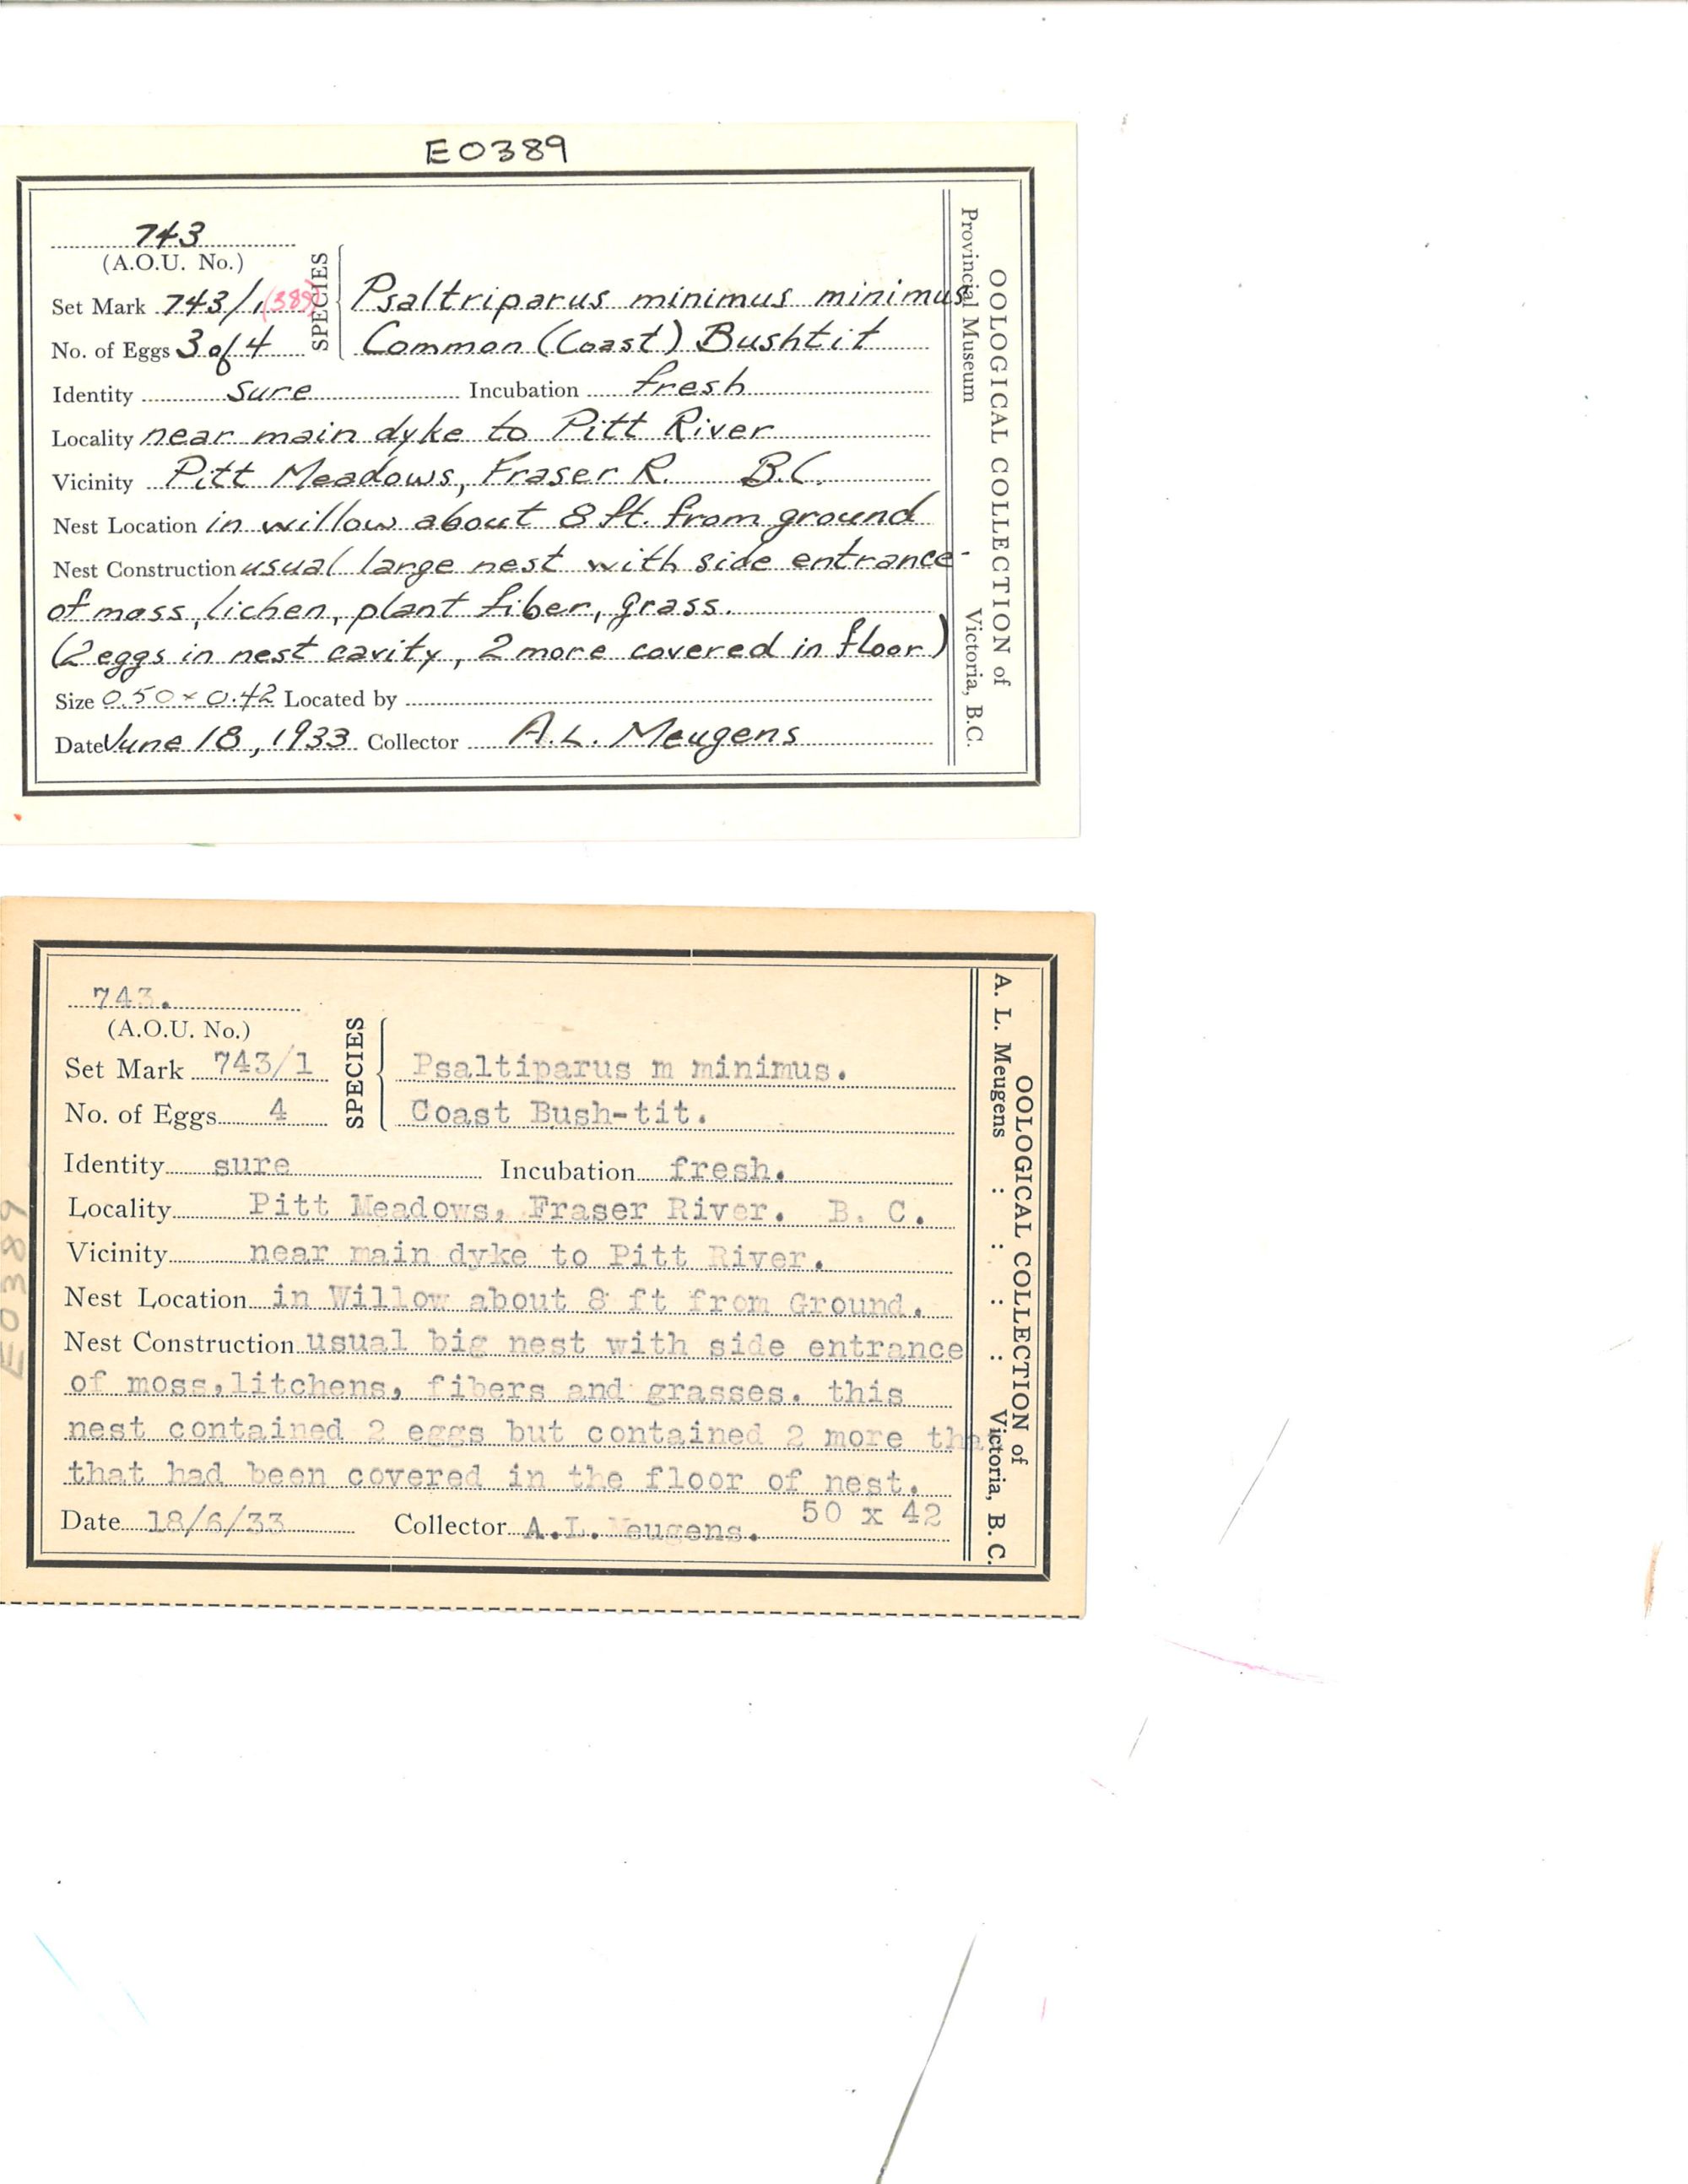 E0389
743
(A.O.U. No.)
Set Mark 743/1 (389)
No. of Eggs 3 of 4
SPECIES
Psaltriparus minimus minimus
Common (Coast) Bushtit
Identity sure Incubation fresh
Locality near main dyke to Pitt River
Vicinity Pitt Meadows, Fraser R. B.C.
Nest Location in willow about 8 ft. from ground
Nest Construction usual large nest with side entrance-
of moss, lichen, plant fiber, grass.
(2 eggs in nest cavity, 2 more covered in floor)
Size 0.50 x 0.42 Located by
Date June 18, 1933 Collector A.L. Meugens
OOLOGICAL COLLECTION of
Provincial Museum Victoria, B.C.
743.
(A.O.U. No.)
Set Mark 743/1
No. of Eggs 4
SPECIES
Psaltiparus m minimus.
Coast Bush-tit.
Identity sure Incubation fresh.
Locality Pitt Meadows, Fraser River. B. C.
Vicinity near main dyke to Pitt River.
Nest Location in Willow about 8 ft from Ground.
Nest Construction usual big nest with side entrance
of moss,litchens, fibers and grasses. this
nest contained 2 eggs but contained 2 more tha
that had been covered in the floor of nest.
50 x 42
Date 18/6/33 Collector A.L. Meugens.
OOLOGICAL COLLECTION of
A. L. Meugens : : : : Victoria, B. C.
E0389